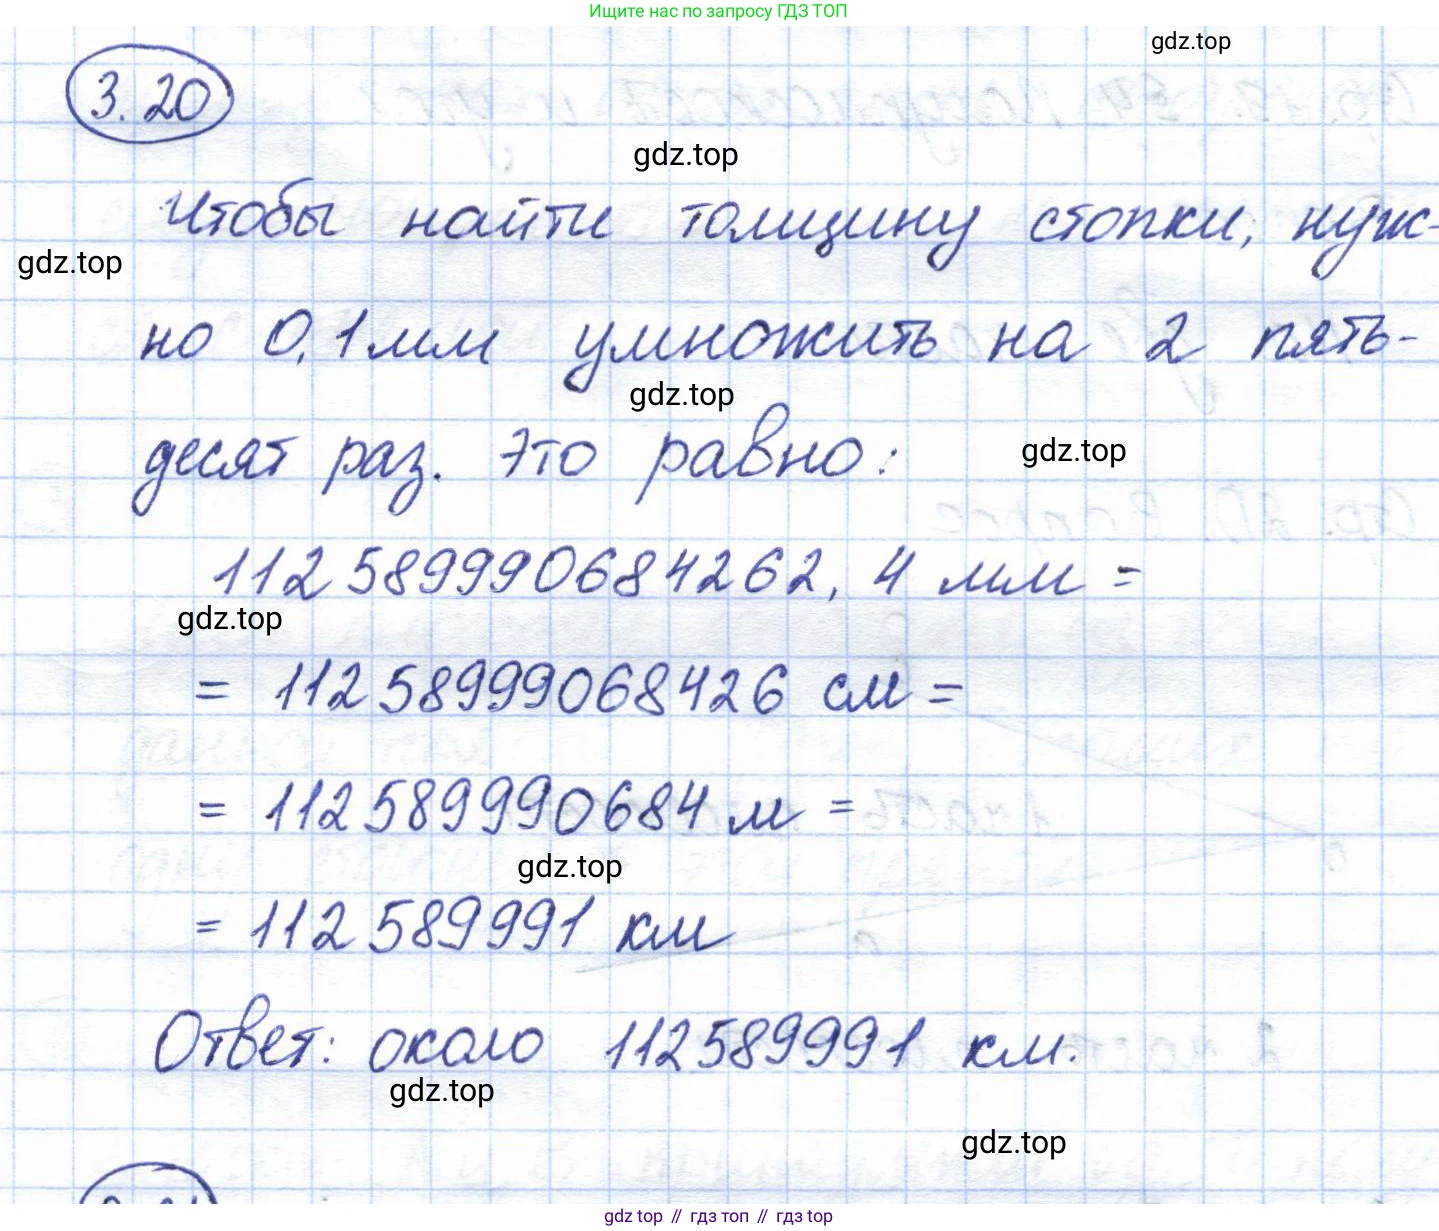 Ищите нас по запросу ГДЗ ТОП
gdz.top
3.20
gdz.top
Чтобы найти толщину стопки, нуж-
gdz.top
но 0,1 мм умножить на 2 пять-
gdz.top
десят раз. Это равно:
gdz.top
112589990684262,4 мм =
gdz.top
= 11258999068426 см =
= 112589990684 м =
gdz.top
= 112589991 км
Ответ: около 112589991 км.
gdz.top
gdz.top
gdz top // гдз топ // гдз top